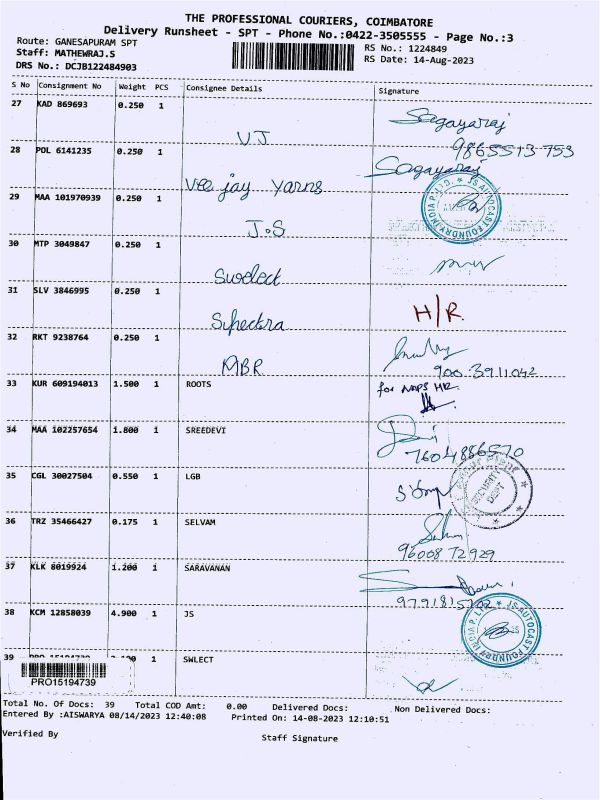 THE PROFESSIONAL COURIERS, COIMBATORE
Delivery Runsheet - SPT - Phone No.:0422-3505555 - Page No.:3
Route: GANESAPURAM SPT
RS No.: 1224849
Staff: MATHEWRAJ.S
RS Date: 14-Aug-2023
DRS No.: DCJB122484903
S No Consignment No Weight PCS Consignee Details Signature
27 KAD 869693 0.250 1 VJ Sagayaraj
9865513753
28 POL 6141235 0.250 1 Vee jay Yarns Sagayaraj
29 MAA 101970939 0.250 1 J.S
JS AUTOCAST FOUNDRY INDIA P. LTD.
30 MTP 3049847 0.250 1 Swelect
31 SLV 3846995 0.250 1 H/R
32 RKT 9238764 0.250 1 ABR
900 3911042
33 KUR 609194013 1.500 1 ROOTS for NAPS HR
34 MAA 102257654 1.800 1 SREEDEVI
7604886570
35 CGL 30027504 0.550 1 LGB
SECURITY DEPT
36 TRZ 35466427 0.175 1 SELVAM
96008 72929
37 KLK 8019924 1.200 1 SARAVANAN
38 KCM 12858039 4.900 1 JS
JS AUTOCAST FOUNDRY INDIA P. LTD.
39 PRO 15194739 1 SWLECT
PRO15194739
Total No. Of Docs: 39 Total COD Amt: 0.00 Delivered Docs: Non Delivered Docs:
Entered By :AISWARYA 08/14/2023 12:40:08 Printed On: 14-08-2023 12:10:51
Verified By Staff Signature